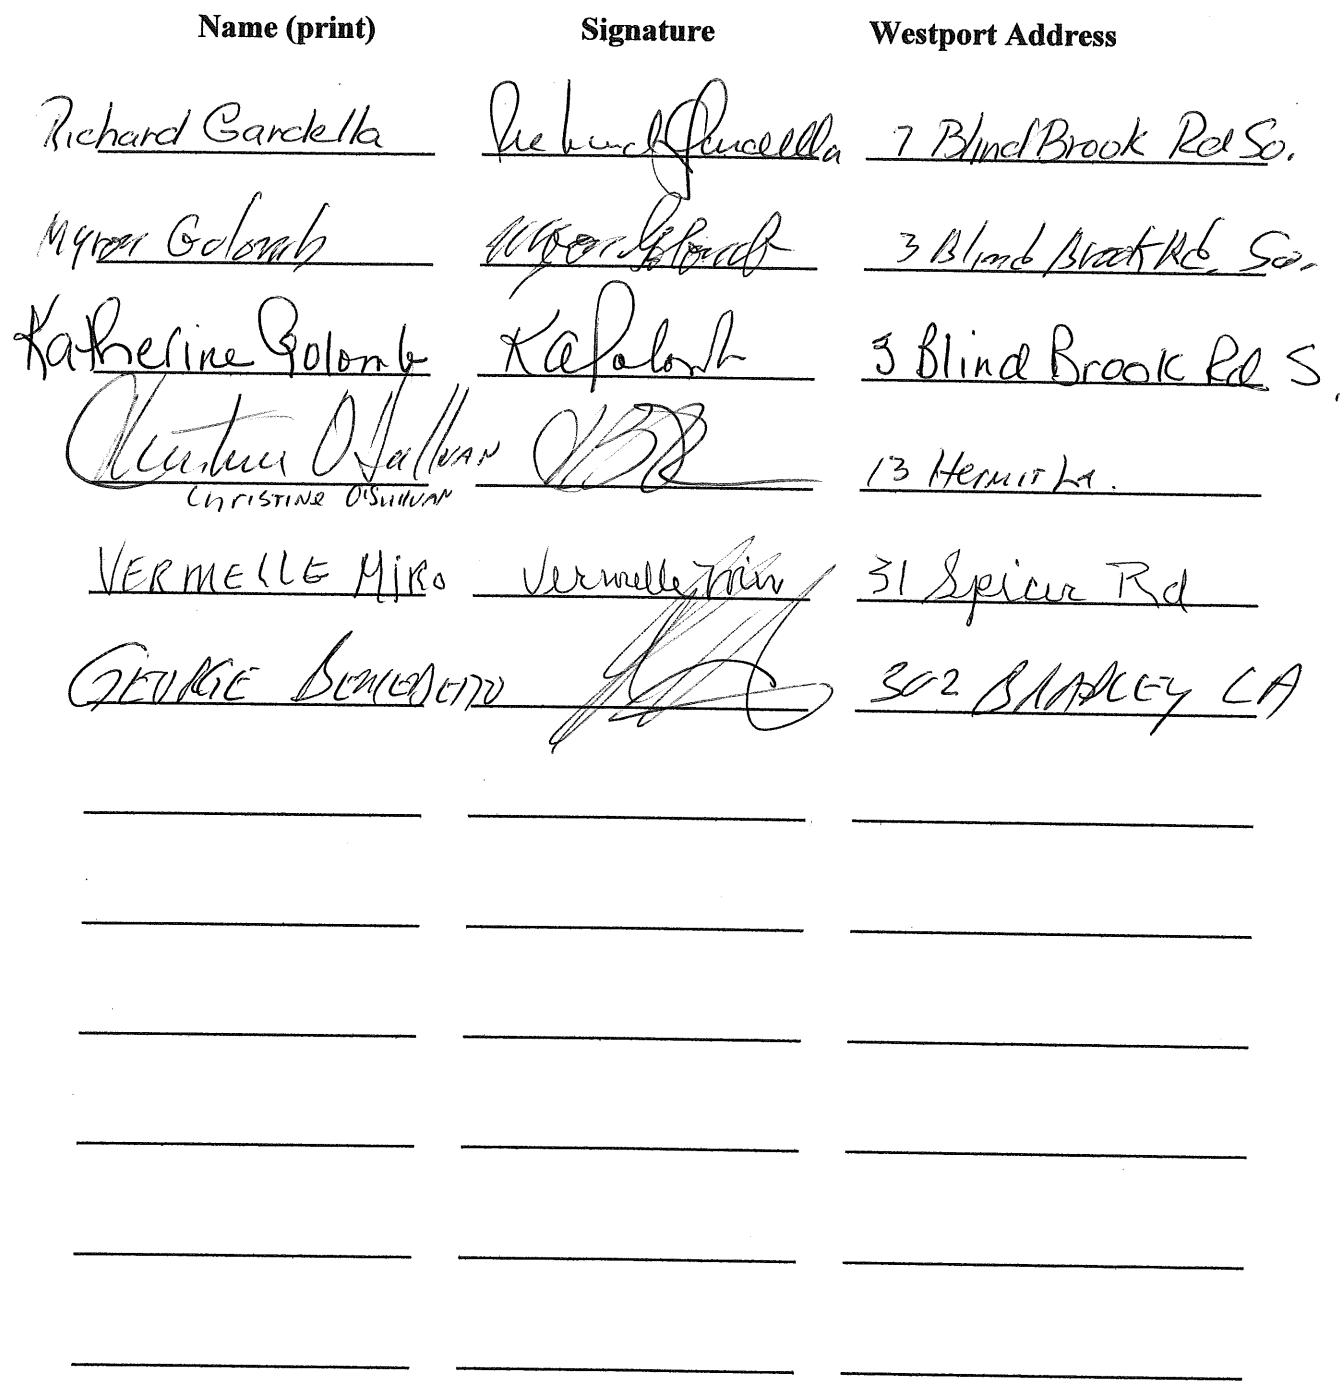 Name (print) Signature Westport Address
Richard Gardella Richard Gardella 7 Blind Brook Rd So.
Myron Golomb Myron Golomb 3 Blind Brook Rd. So.
Katherine Golomb KAGolomb 3 Blind Brook Rd S.
Christine O'Sullivan 13 Hermit La.
Christine O'Sullivan
VERMELLE Miro Vermelle Miro 31 Spicer Rd
GEORGE BENEDETTO 302 BRADLEY LA